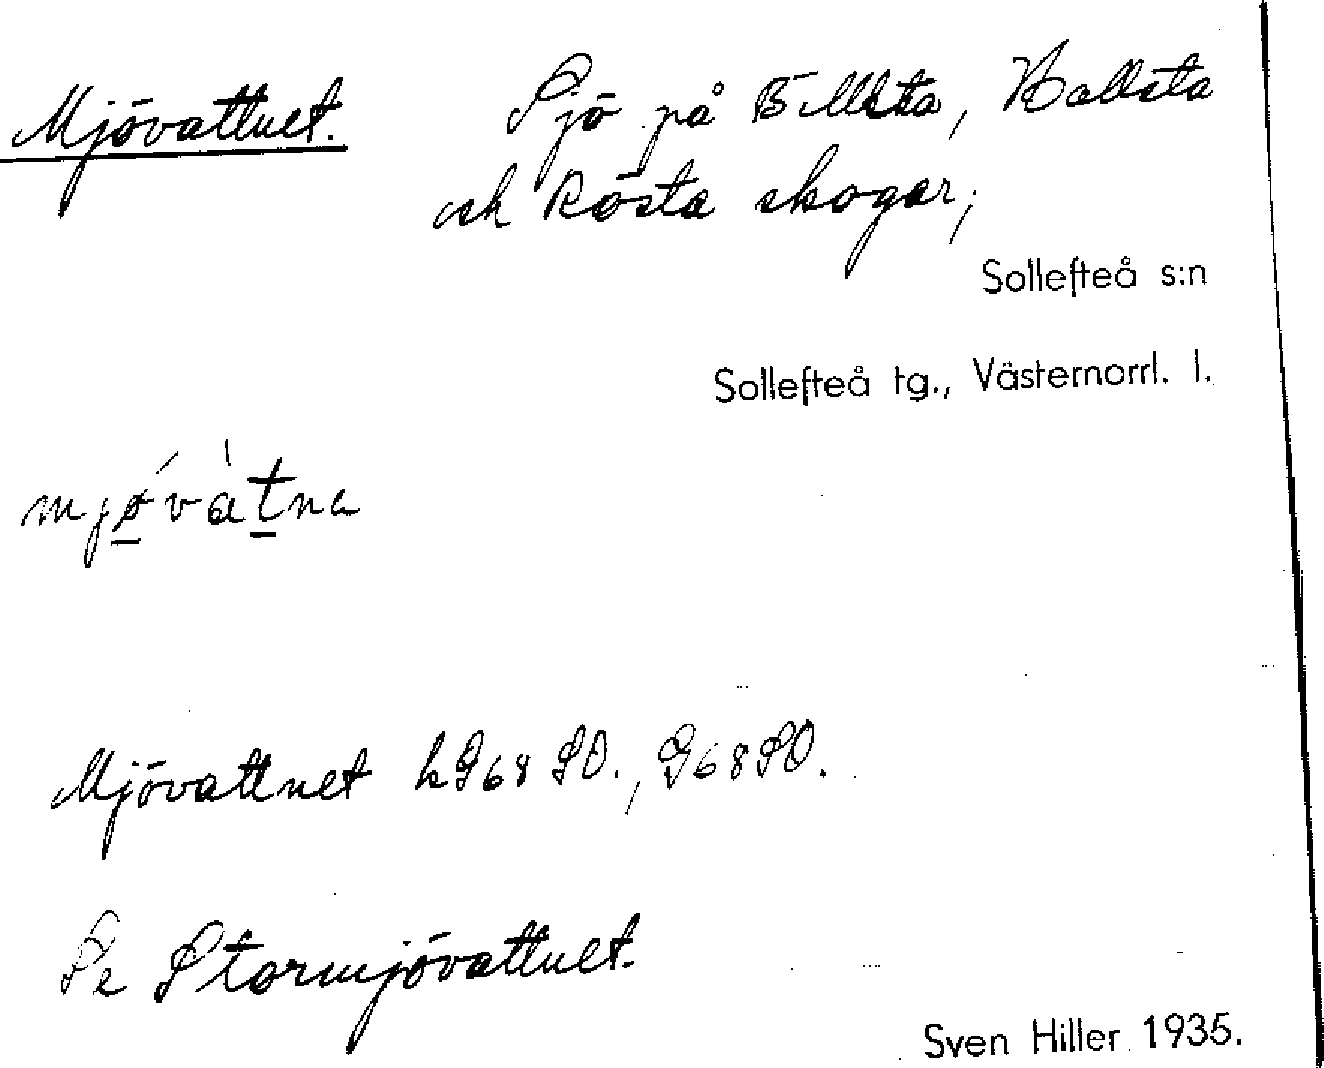 Mjövattnet. Sjö på Billsta, Hallsta
och Rösta skogar;
Sollefteå s:n
Sollefteå tg., Västernorrl. l.
mjøvàtna
Mjövattnet hS68SO., S68SO.
Se Stormjövattnet.
Sven Hiller 1935.